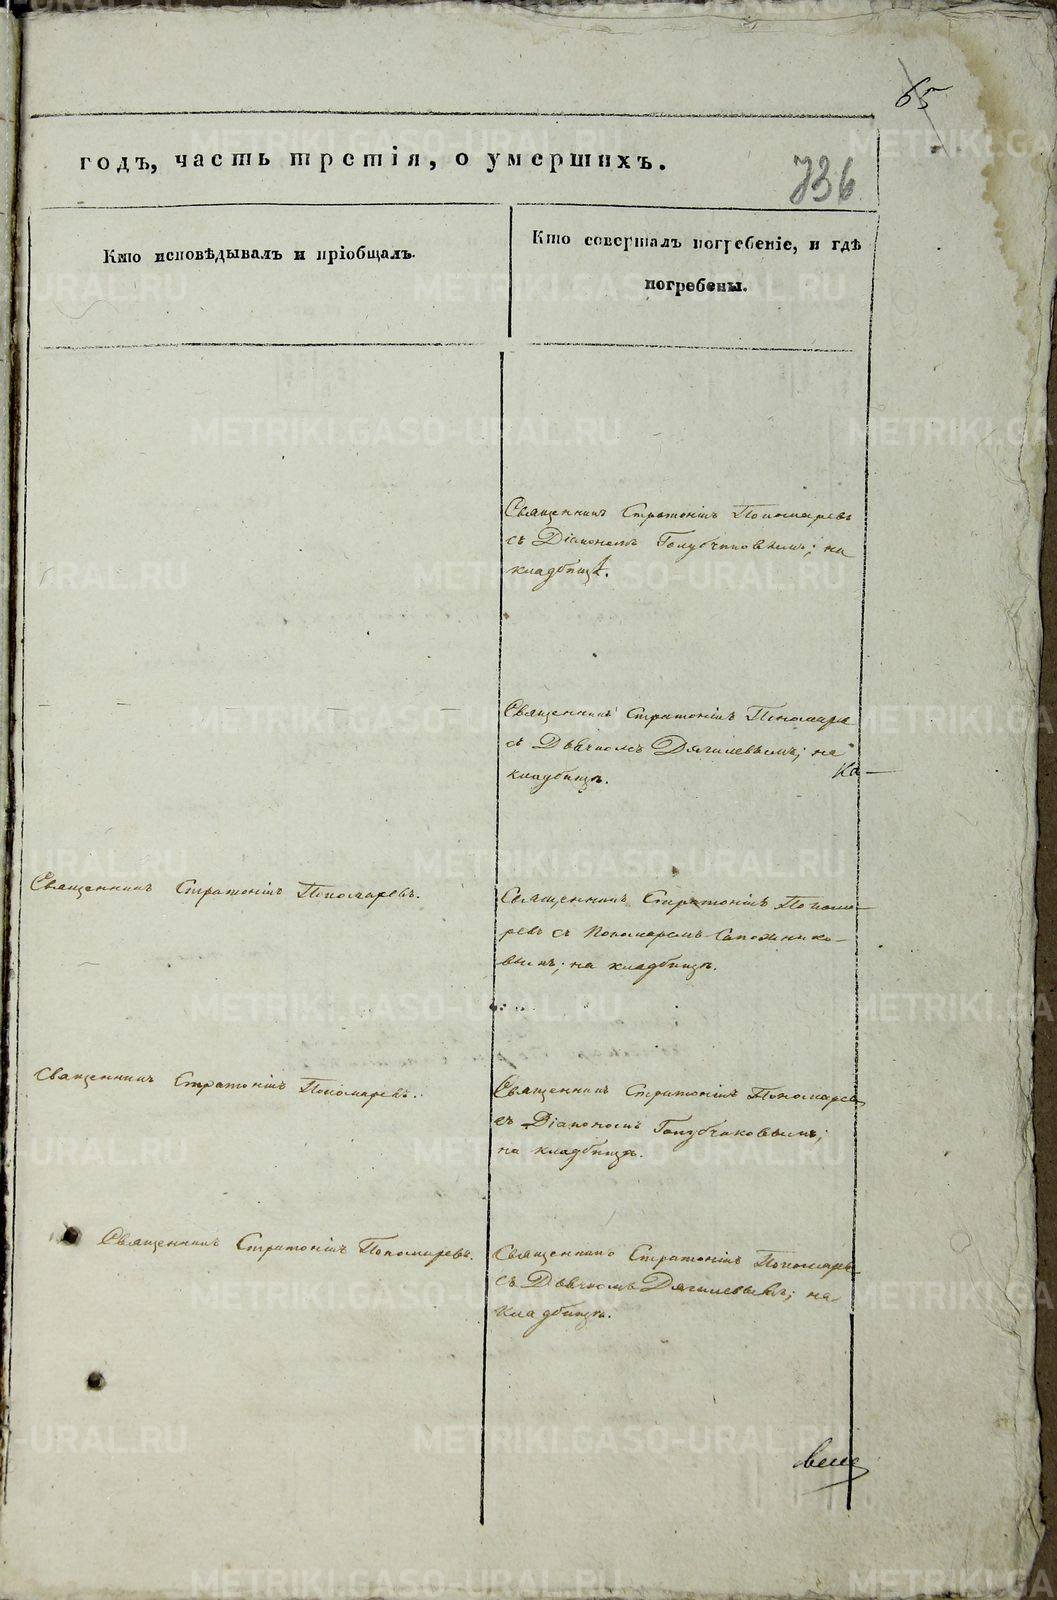 65
годъ, часть третія, о умершихъ.
736
Кто исповѣдывалъ и пріобщалъ.
Кто совершалъ погребеніе, и гдѣ
погребены.
Священникъ Стратоникъ Пономаревъ
съ Діакономъ Голубчиковымъ; на
кладбищѣ.
Священникъ Стратоникъ Пономаре
съ Дьячкомъ Дягилевымъ; на
кладбищѣ.
Священникъ Стратоникъ Пономаревъ.
Священникъ Стратоникъ Понома-
ревъ съ Пономаремъ Сапожнико-
вымъ; на кладбищѣ.
Священникъ Стратоникъ Пономаревъ.
Священникъ Стратоникъ Пономарев
съ Діакономъ Голубчиковымъ;
на кладбищѣ.
Священникъ Стратоникъ Пономаревъ.
Священникъ Стратоникъ Пономарев
съ Дьячкомъ Дягилевымъ; на
кладбищѣ.
METRIKI.GASO-URAL.RU